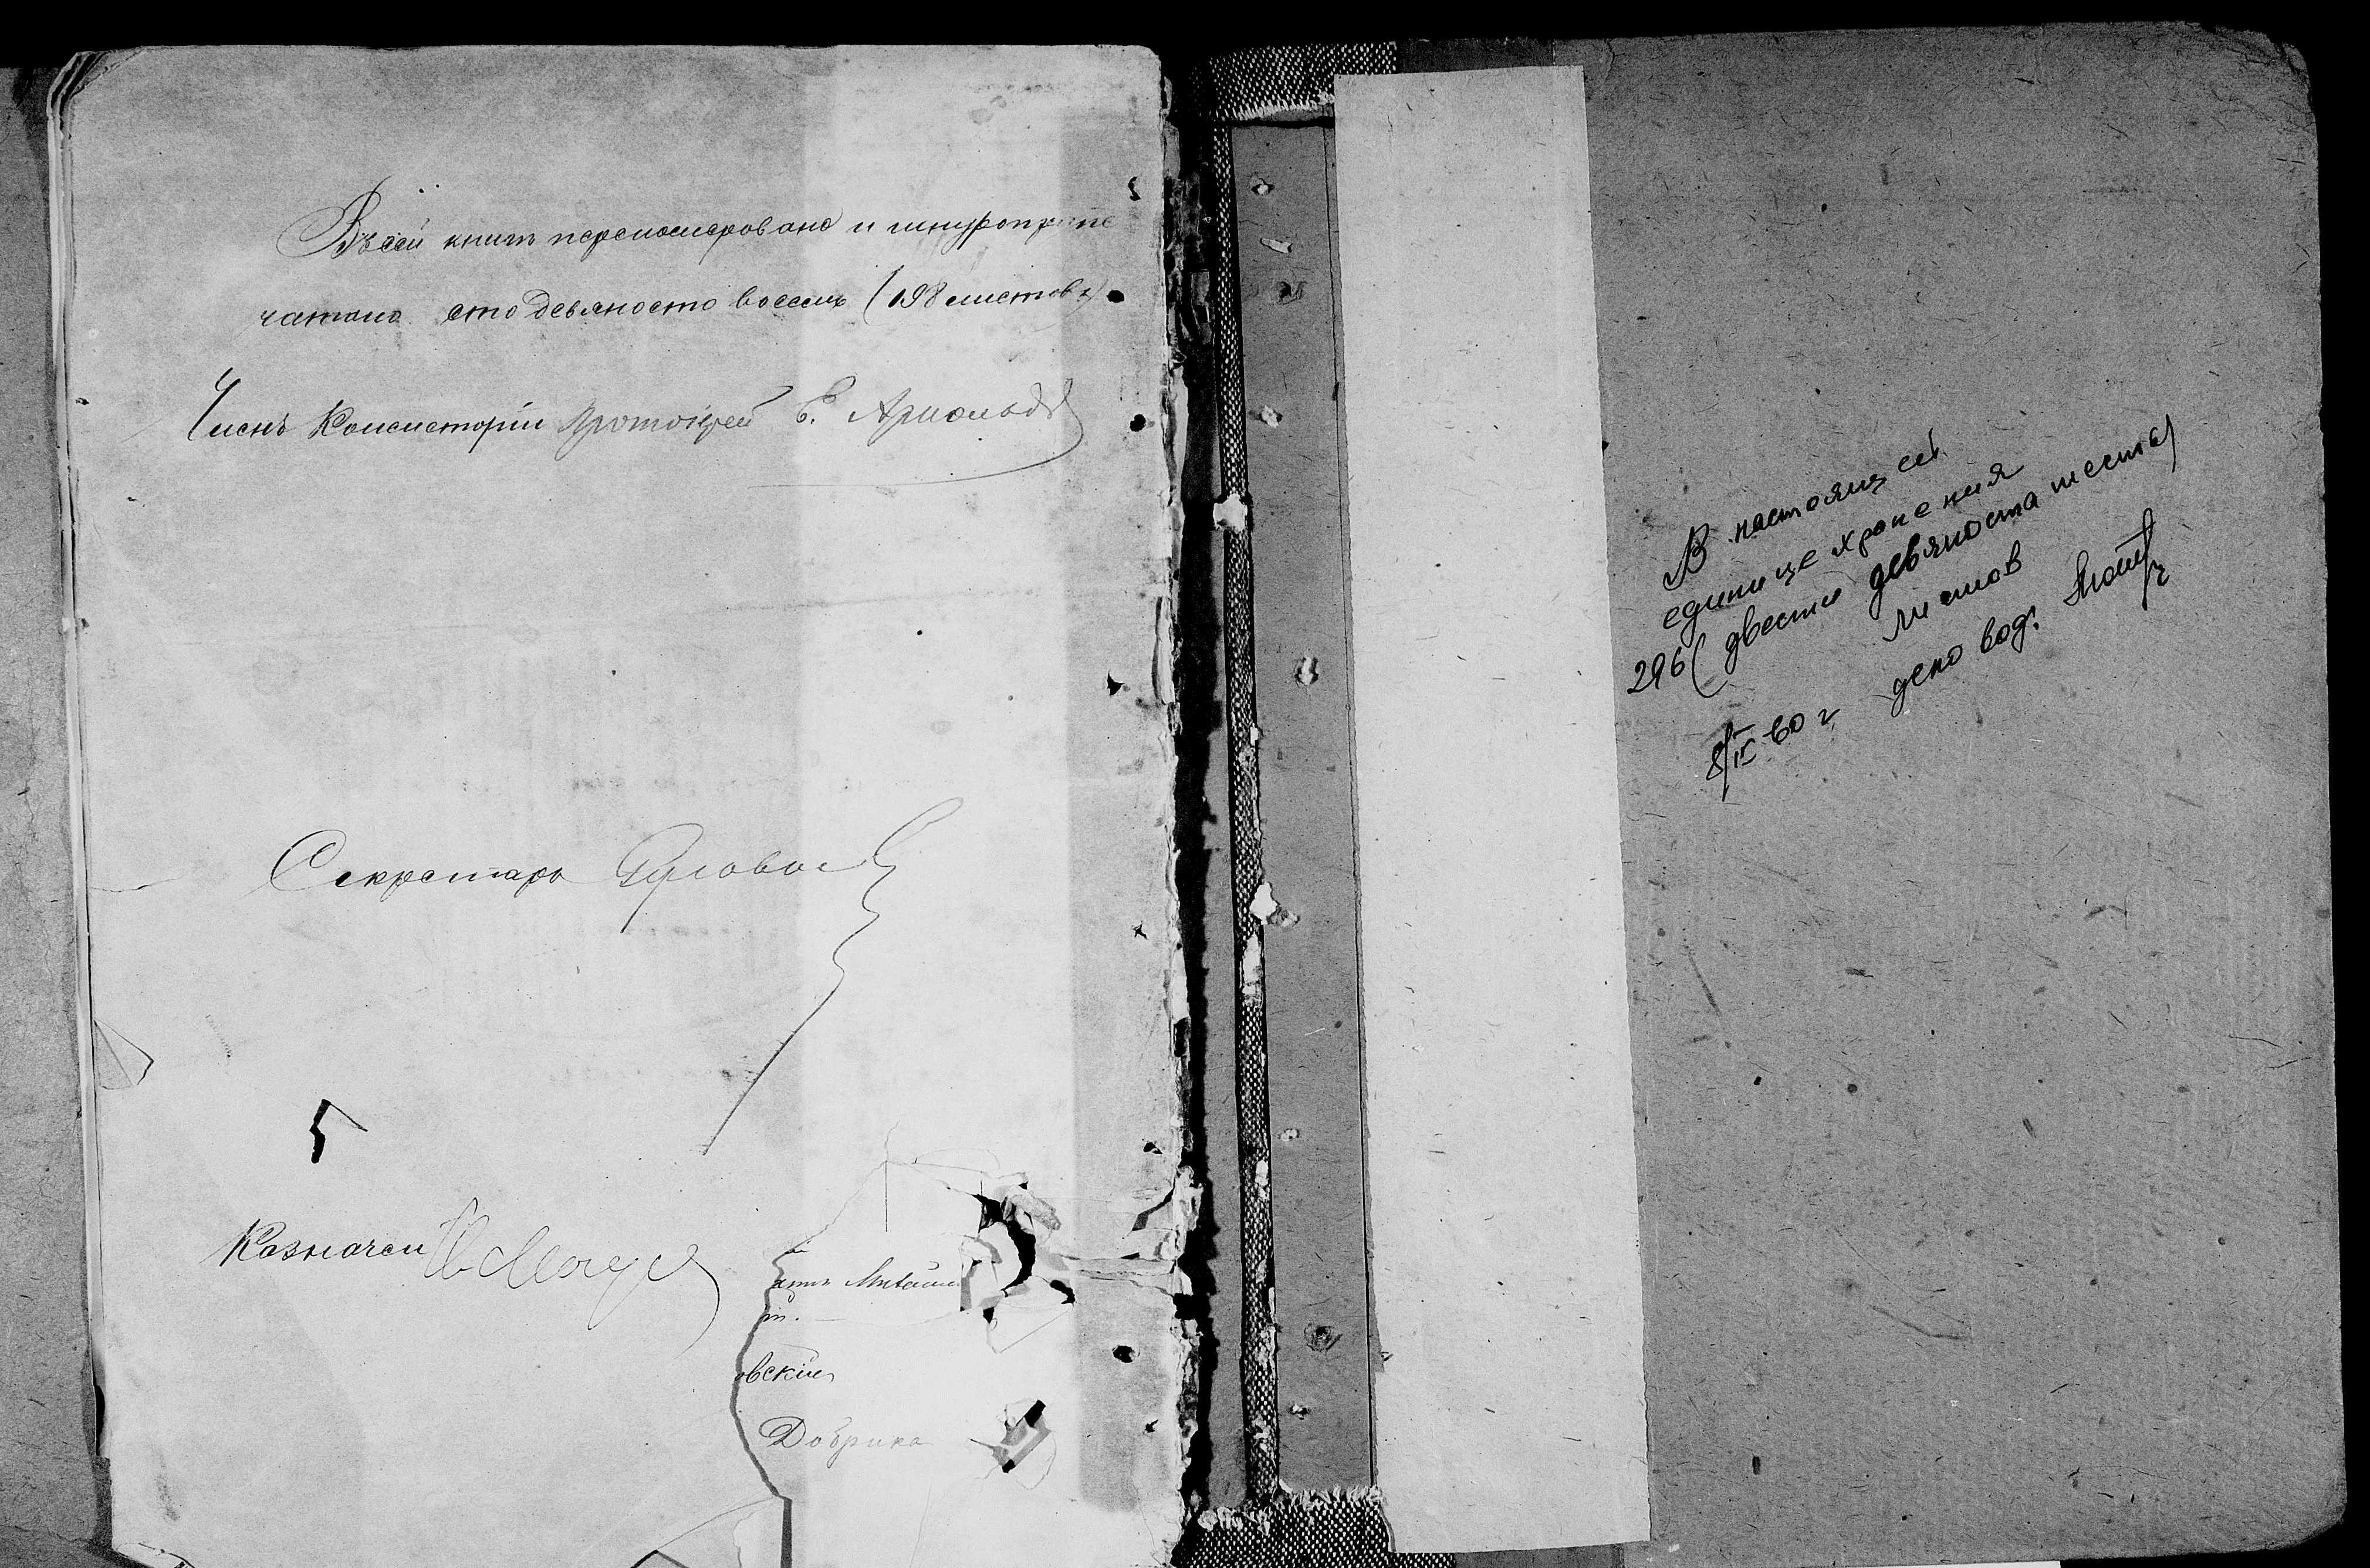 Въ сей книгѣ перенумеровано и шнуроприпе
чатано сто девяносто восемь (198 листовъ)
Членъ Консисторіи Протоіерей Е. Арнольдъ
Секретарь
Казначей
овскій
Добрика
В настоящей
единице хранения
296 (двести девяноста шесть)
листов
8/IV 60 г деловод.